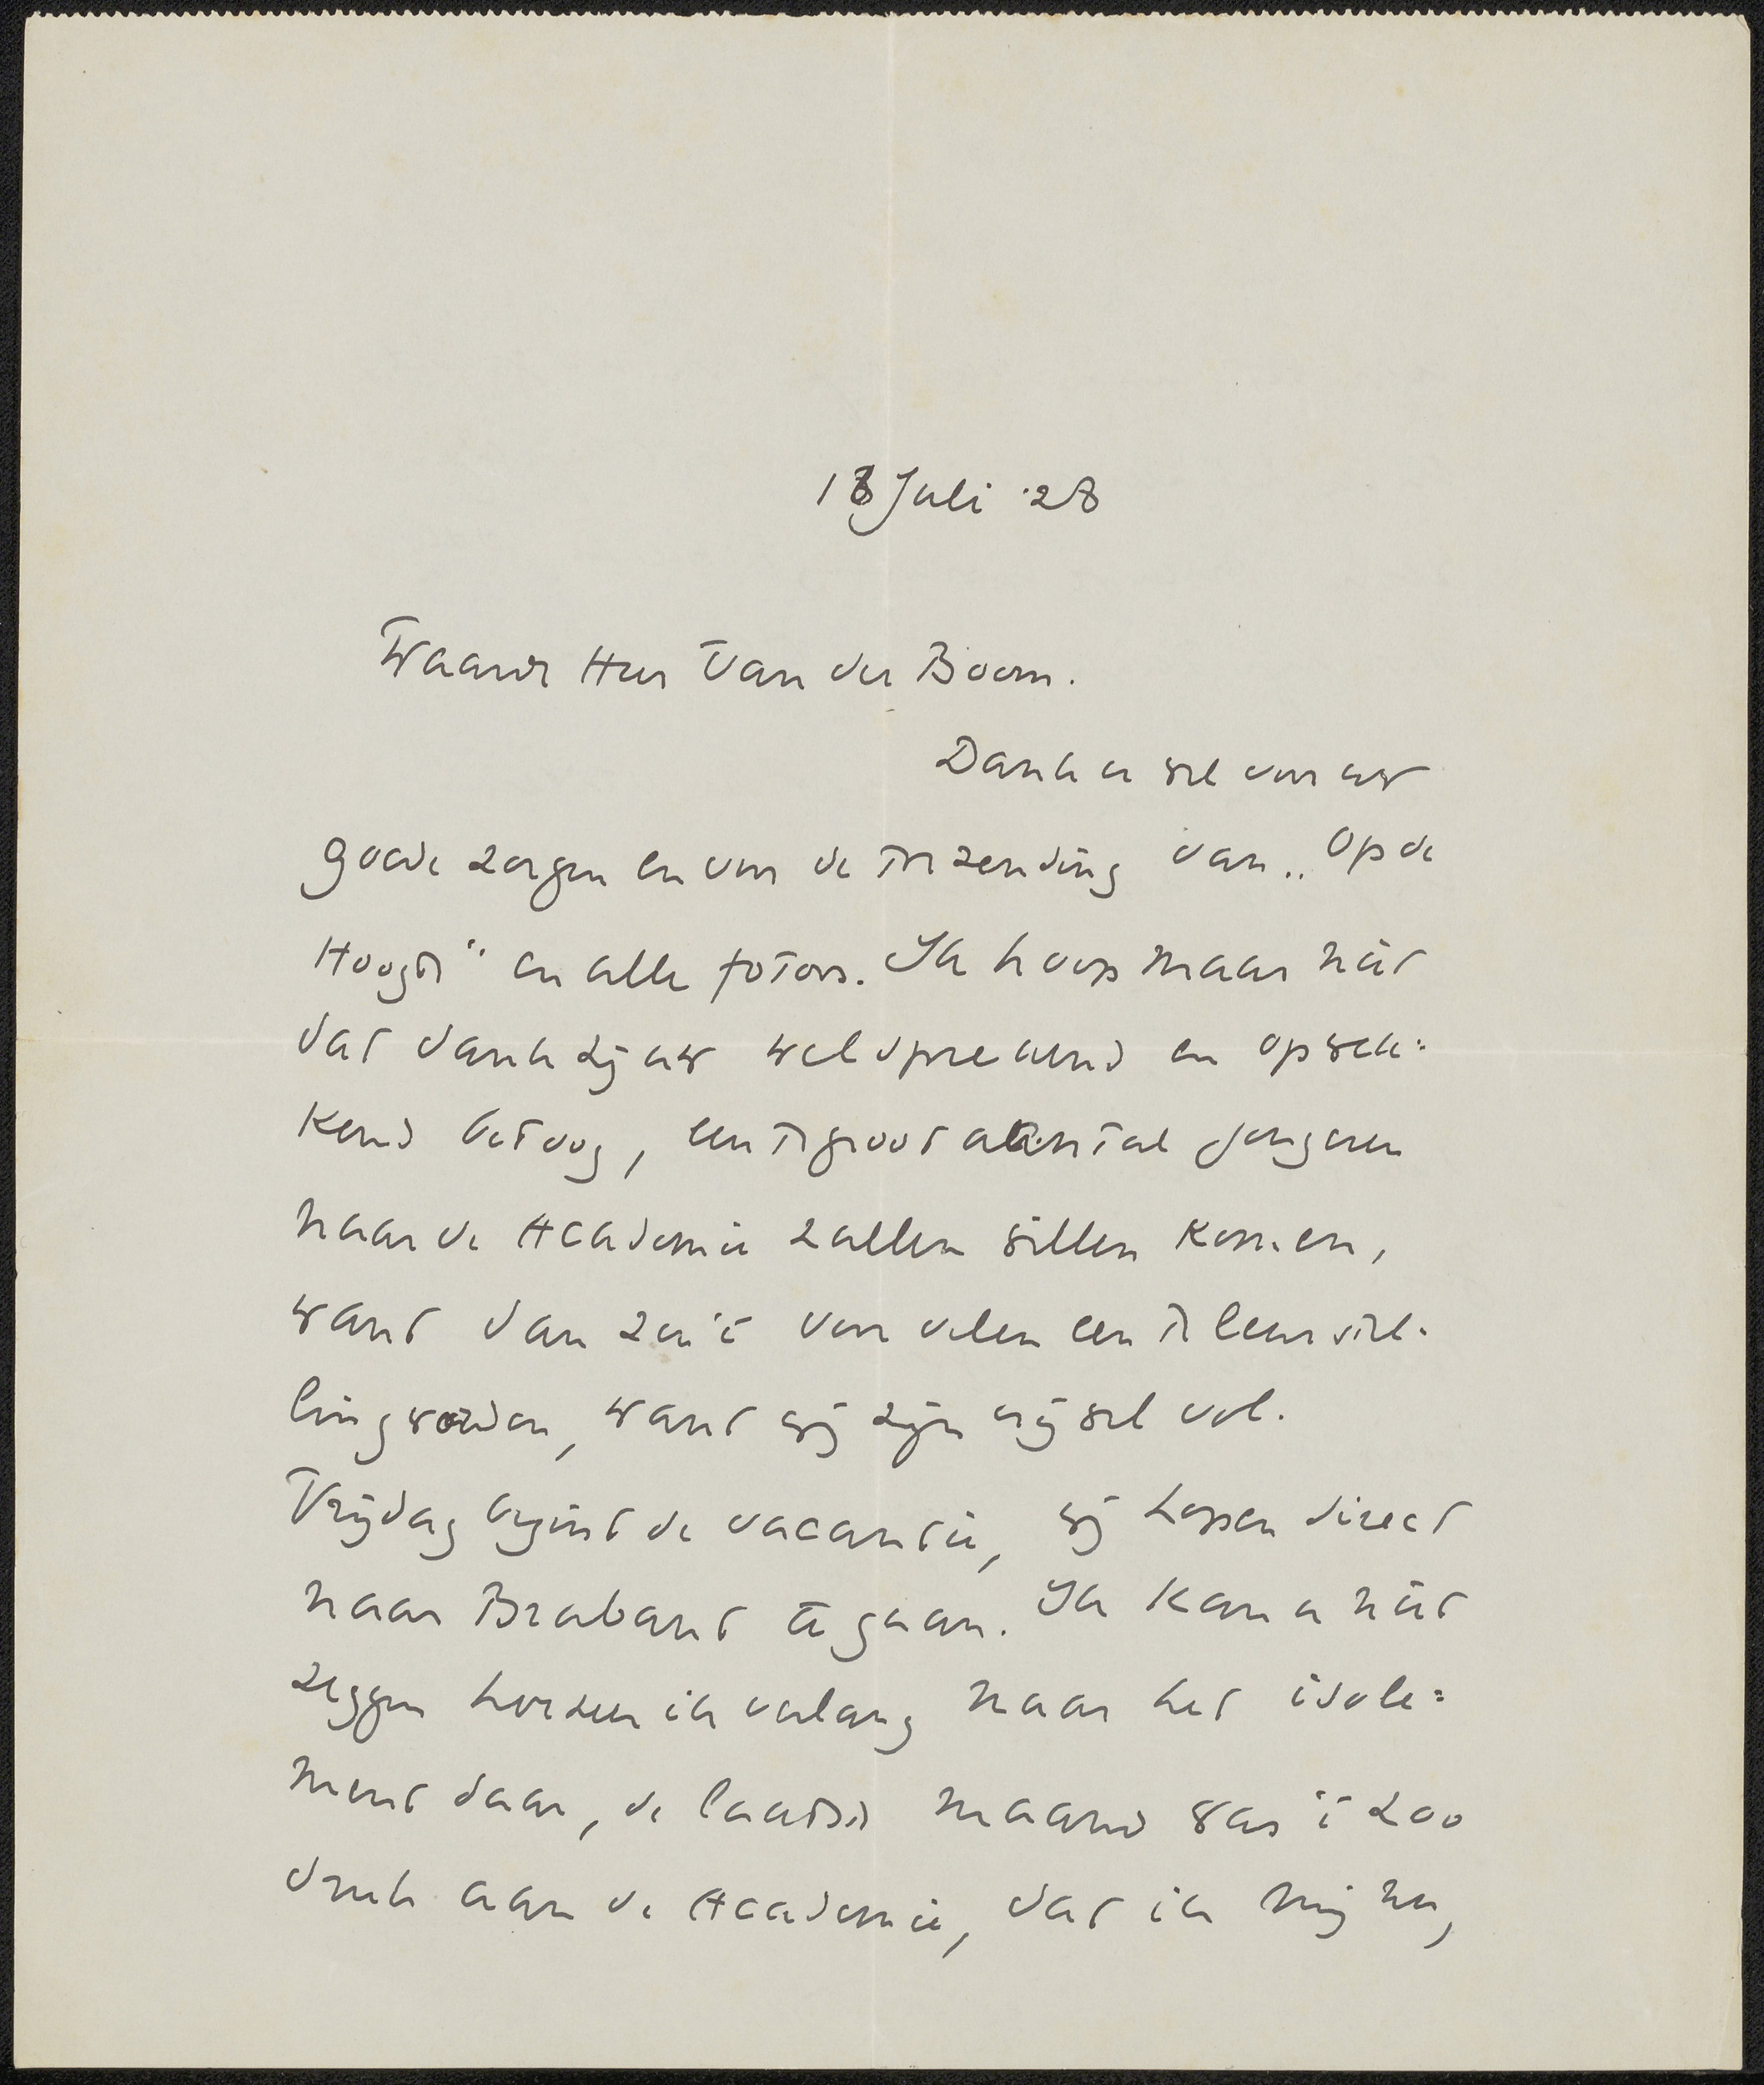 18 Juli '28
Waarde Heer Van der Boom.
Dank u wel voor uw
goede zorgen en voor de toezending van „Op de
Hoogte" en alle foto's. Ik hoop maar niet
dat dank zij uw welsprekend en opwek=
kend betoog, een te groot aantal jongeren
naar de Academie zullen willen komen,
want dan zou 't voor velen een te leurstel=
ling worden, want wij zijn vrij wel vol.
Vrijdag begint de vacantie, wij hopen direct
naar Brabant te gaan. Ik kan u niet
zeggen hoezeer ik verlang naar het isole=
ment daar, de laatste maand was 't zoo
druk aan de Academie, dat ik mij nu,